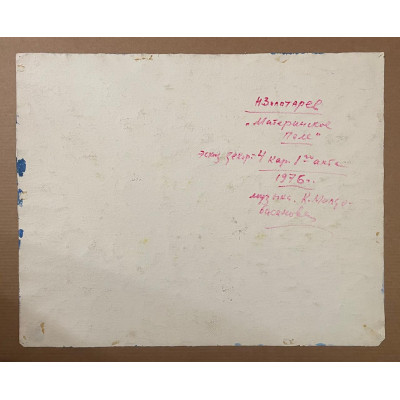 Н Золотарев
„Материнское
Поле"
эскиз декор. 4 кар. 1го акта
1976 г.
музыка. К. Молдо-
басанова